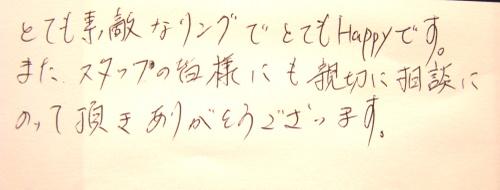 とても素敵なリングでとてもHappyです。
また スタップの皆様にも親切に相談に
のって頂きありがとうございます。